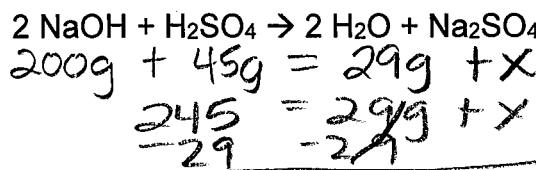 2 NaOH + H₂SO₄ → 2 H₂O + Na₂SO₄
200g + 45g = 29g + x
245 = 29g + x
-29 -29